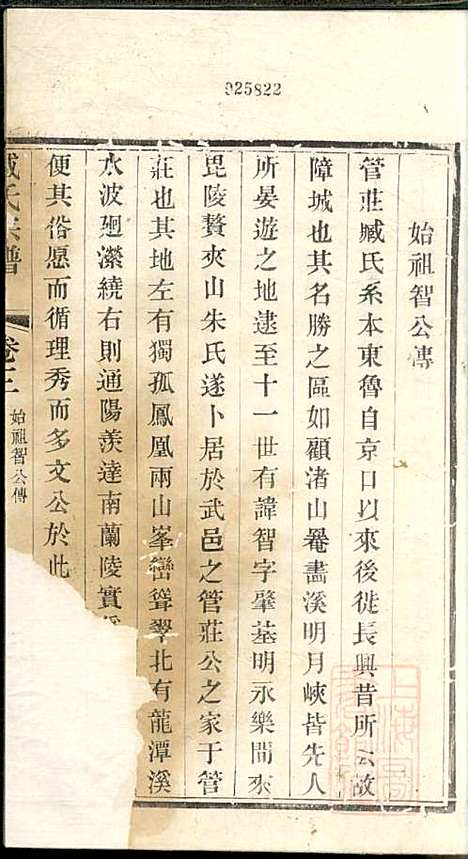 925822
始祖智公傳
管莊臧氏系本東魯自京口以來後徙長興昔所云故
障城也其名勝之區如顧渚山罨畫溪明月峽皆先人
所晏遊之地逮至十一世有諱智字肇基明永樂間來
毘陵贅夾山朱氏遂卜居於武邑之管莊公之家于管
莊也其地左有獨孤鳳凰兩山峯巒聳翠北有龍潭溪
水波廻瀠繞右則通陽羨達南蘭陵實
便其俗愿而循理秀而多文公於此
臧氏宗譜
卷二
始祖智公傳